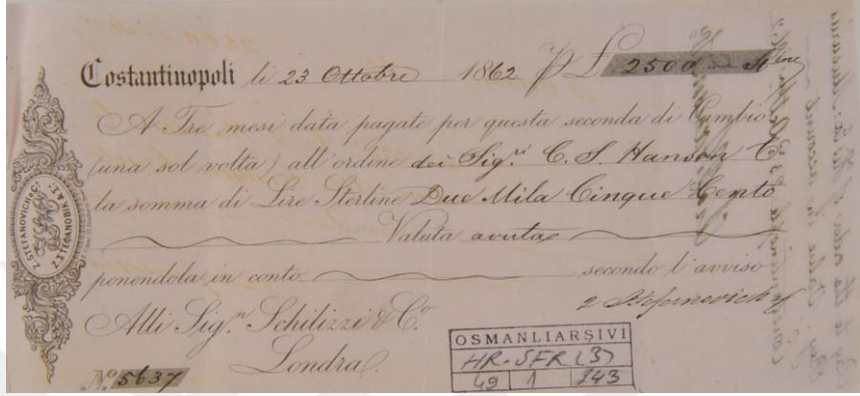 Costantinopoli li 23 Ottobre 1862 P £ 2500 — Stne
A Tre mesi data pagate per questa seconda di Cambio
(una sol volta) all'ordine dei Sigri C. S. Hanson C
la somma di Lire Sterline Due Mila Cinque Cento
Valuta avuta
ponendola in conto secondo l'avviso
Alli Sign Schilizzi & Co.
Londra
No 5637
Z. STEFANOVICH & C:
OSMANLI ARŞIVI
HR.SFR (3)
49 1 143